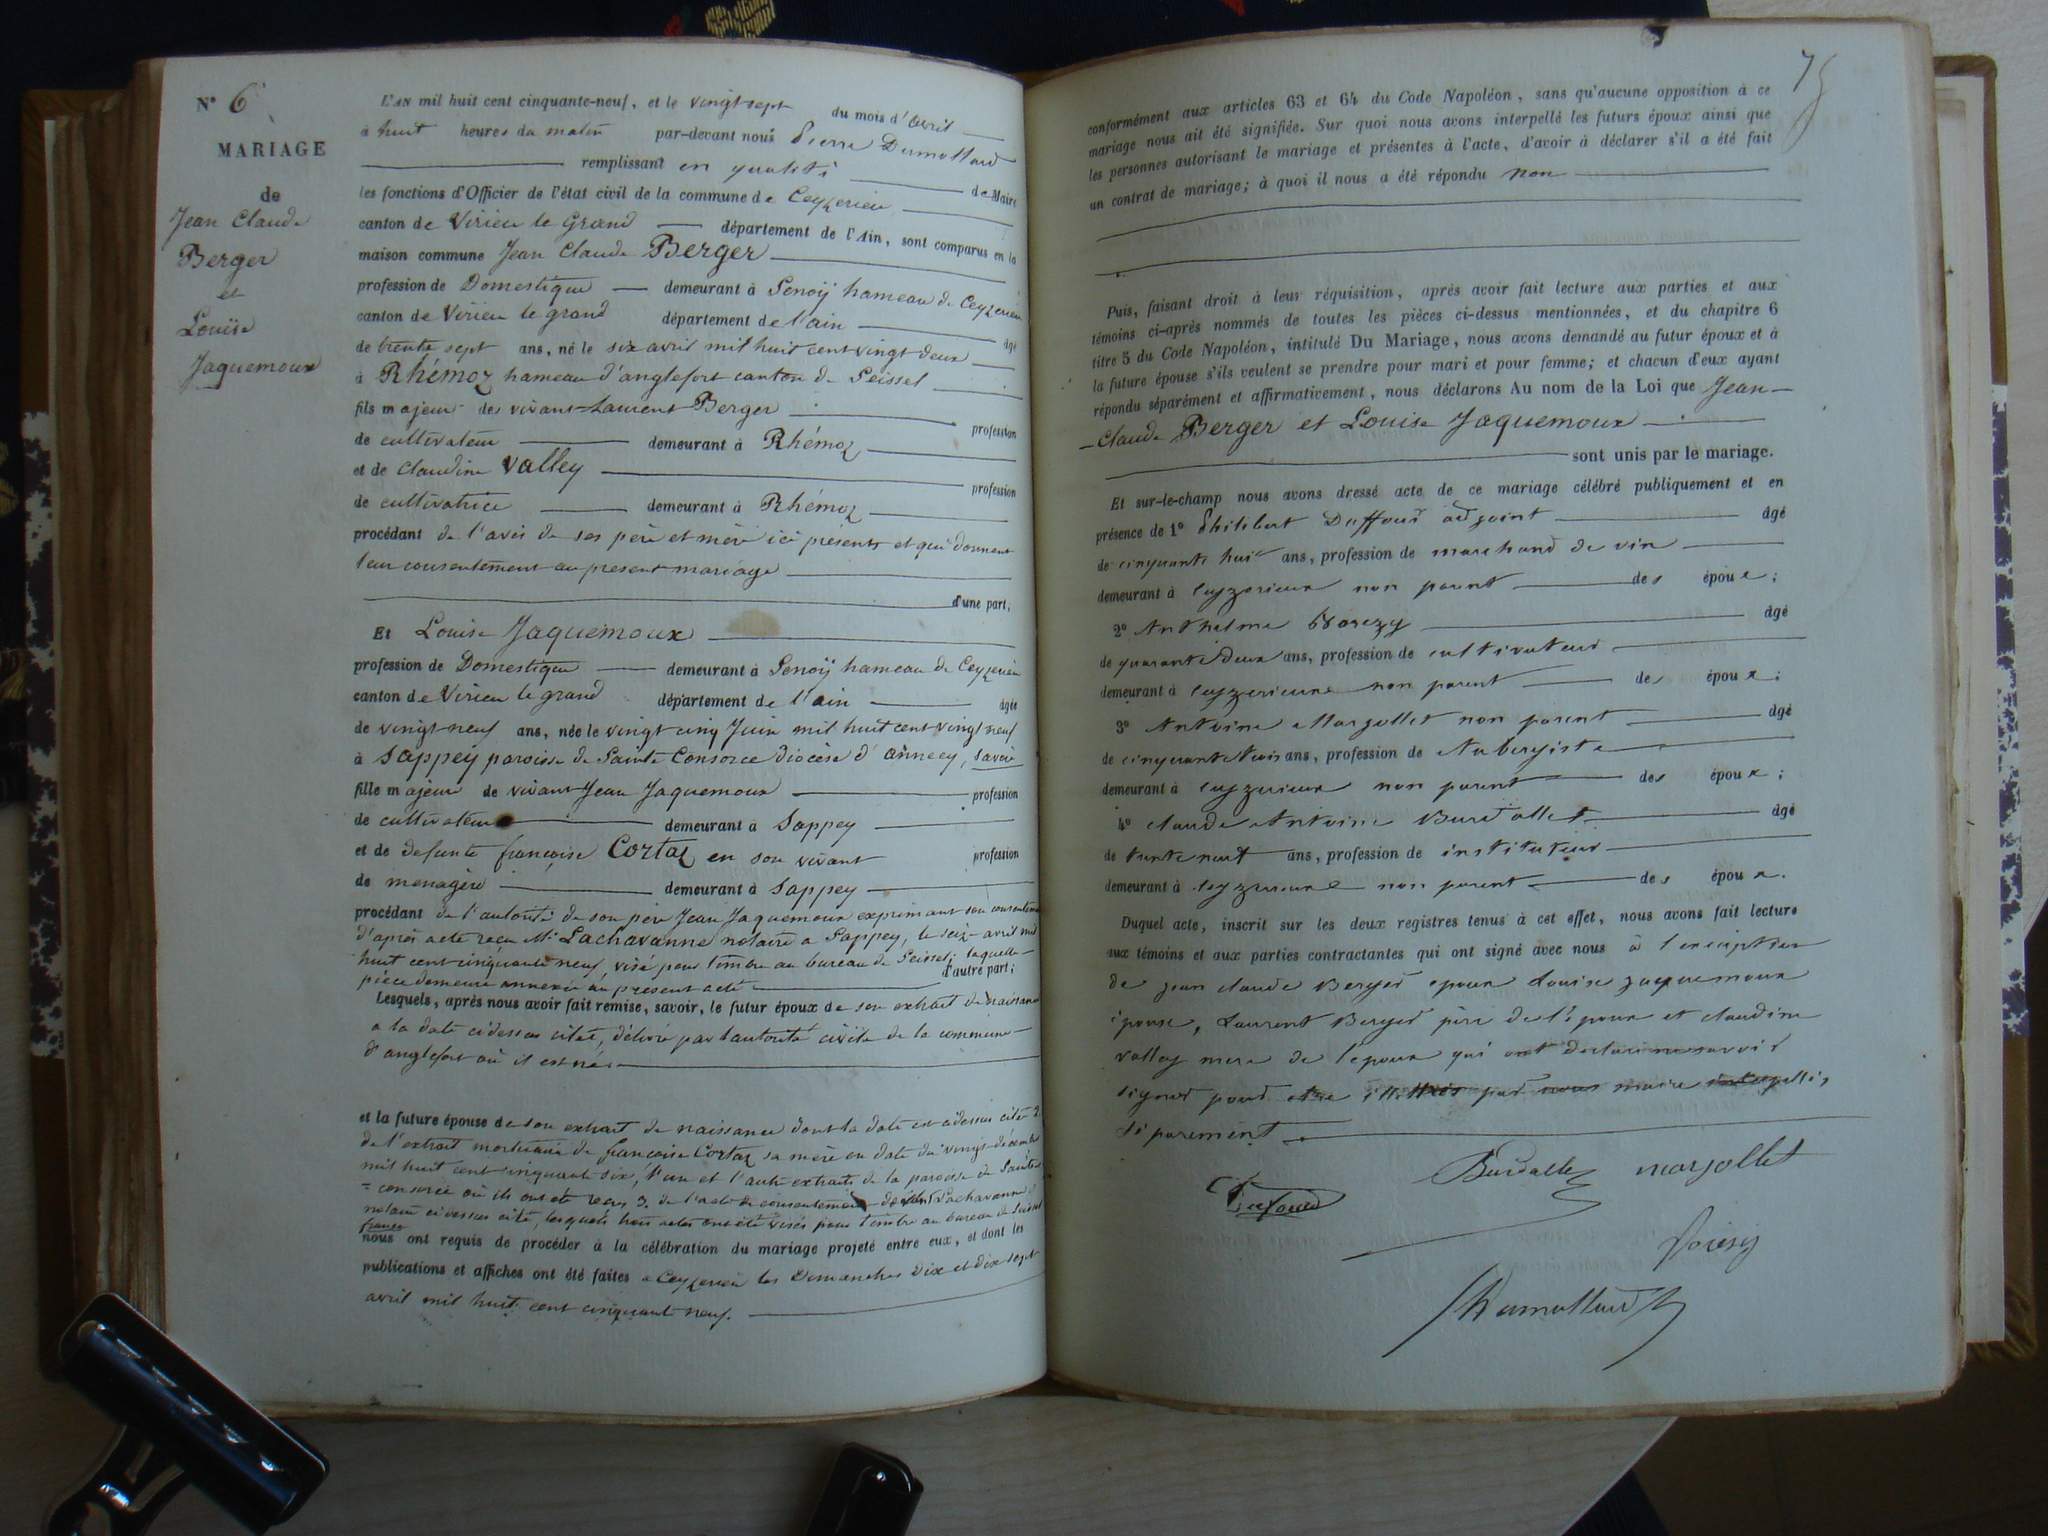 N° 6
MARIAGE
de
Jean Claude
Berger
et
Louise
Jaquemoux
L'AN mil huit cent cinquante-neuf, et le vingt sept du mois d'avril
à huit heures du matin par-devant nous Pierre Dumollard
remplissant en qualité de Maire
les fonctions d'Officier de l'état civil de la commune de Ceyzerieu
canton de Virieu le Grand département de l'Ain, sont comparus en la
maison commune Jean Claude Berger
profession de Domestique demeurant à Senoÿ hameau de Ceyzerieu
canton de Virieu le grand département de l'ain âgé
de trente sept ans, né le six avril mil huit cent vingt deux
à Rhémoz hameau d'anglefort canton de Seissel
fils majeur des vivant Laurent Berger profession
de cultivateur demeurant à Rhémoz
et de Claudine Valley profession
de cultivatrice demeurant à Rhémoz
procédant de l'avis de ses père et mère ici présents et qui donnent
leur consentement au present mariage
d'une part;
Et Louise Jaquemoux
profession de Domestique demeurant à Senoÿ hameau de Ceyzerieu
canton de Virieu le grand département de l'ain âgée
de vingt neuf ans, née le vingt cinq Juin mil huit cent vingt neuf
à Sappey paroisse de Sainte Consorce diocèse d'annecy, savoie
fille majeur de vivant Jean Jaquemoux profession
de cultivateur demeurant à Sappey
et de defunte françoise Cortaz en son vivant profession
de menagère demeurant à Sappey
procédant de l'autorité de son père Jean Jaquemoux exprimant son consentement
d'après acte reçu Me Lachavanne notaire a Sappey, le seize avril mil
huit cent cinquante neuf, visé pour timbre au bureau de Seissel; laquelle
pièce demeure annexée au présent acte d'autre part;
Lesquels, après nous avoir fait remise, savoir, le futur époux de son extrait de naissance
a la date cidessus citée, délivré par l'autorité civile de la commune
d'anglefort où il est né
et la future épouse de son extrait de naissance dont la date est cidessus citée 2.
de l'extrait mortuaire de françoise Cortaz sa mère en date du vingt décembre
mil huit cent cinquante six, l'un et l'autre extraits de la paroisse de Sainte
consorce où ils ont été reçus 3. de l'acte de consentement de Lachavanne
notaire cidessus cité, lesquels trois actes ont été visés pour timbre au bureau de Seissel
france
nous ont requis de procéder à la célébration du mariage projeté entre eux, et dont les
publications et affiches ont été faites a Ceyzerieu les Dimanches Dix et dix sept
avril mil huit cent cinquante neuf.
75
conformément aux articles 63 et 64 du Code Napoléon, sans qu'aucune opposition à ce
mariage nous ait été signifiée. Sur quoi nous avons interpellé les futurs époux ainsi que
les personnes autorisant le mariage et présentes à l'acte, d'avoir à déclarer s'il a été fait
un contrat de mariage; à quoi il nous a été répondu non
Puis, faisant droit à leur réquisition, après avoir fait lecture aux parties et aux
témoins ci-après nommés de toutes les pièces ci-dessus mentionnées, et du chapitre 6
titre 5 du Code Napoléon, intitulé Du Mariage, nous avons demandé au futur époux et à
la future épouse s'ils veulent se prendre pour mari et pour femme; et chacun d'eux ayant
répondu séparément et affirmativement, nous déclarons Au nom de la Loi que Jean
Claude Berger et Louise Jaquemoux
sont unis par le mariage.
Et sur-le-champ nous avons dressé acte de ce mariage célébré publiquement et en
présence de 1° Philibert Duffour adjoint âgé
de cinquante huit ans, profession de marchand de vin
demeurant à Ceyzerieux non parent des époux;
2° Anthelme âgé
de quarante deux ans, profession de cultivateur
demeurant à Ceyzerieux non parent des époux;
3° Antoine Marjollet non parent âgé
de cinquante trois ans, profession de Aubergiste
demeurant à Ceyzerieux non parent des époux;
4° Claude Antoine Burdallet âgé
de trente neuf ans, profession de instituteur
demeurant à Ceyzerieux non parent des époux.
Duquel acte, inscrit sur les deux registres tenus à cet effet, nous avons fait lecture
aux témoins et aux parties contractantes qui ont signé avec nous à l'exception
de jean claude Berger epoux Louise jaquemoux
épouse, Laurent Berger père de l'époux et claudine
valley mere de l'epoux qui ont declaré ne savoir
signer pour etre illettrés par nous maire interpellés
séparément
Burdallet marjollet
Dufour
Dumollard